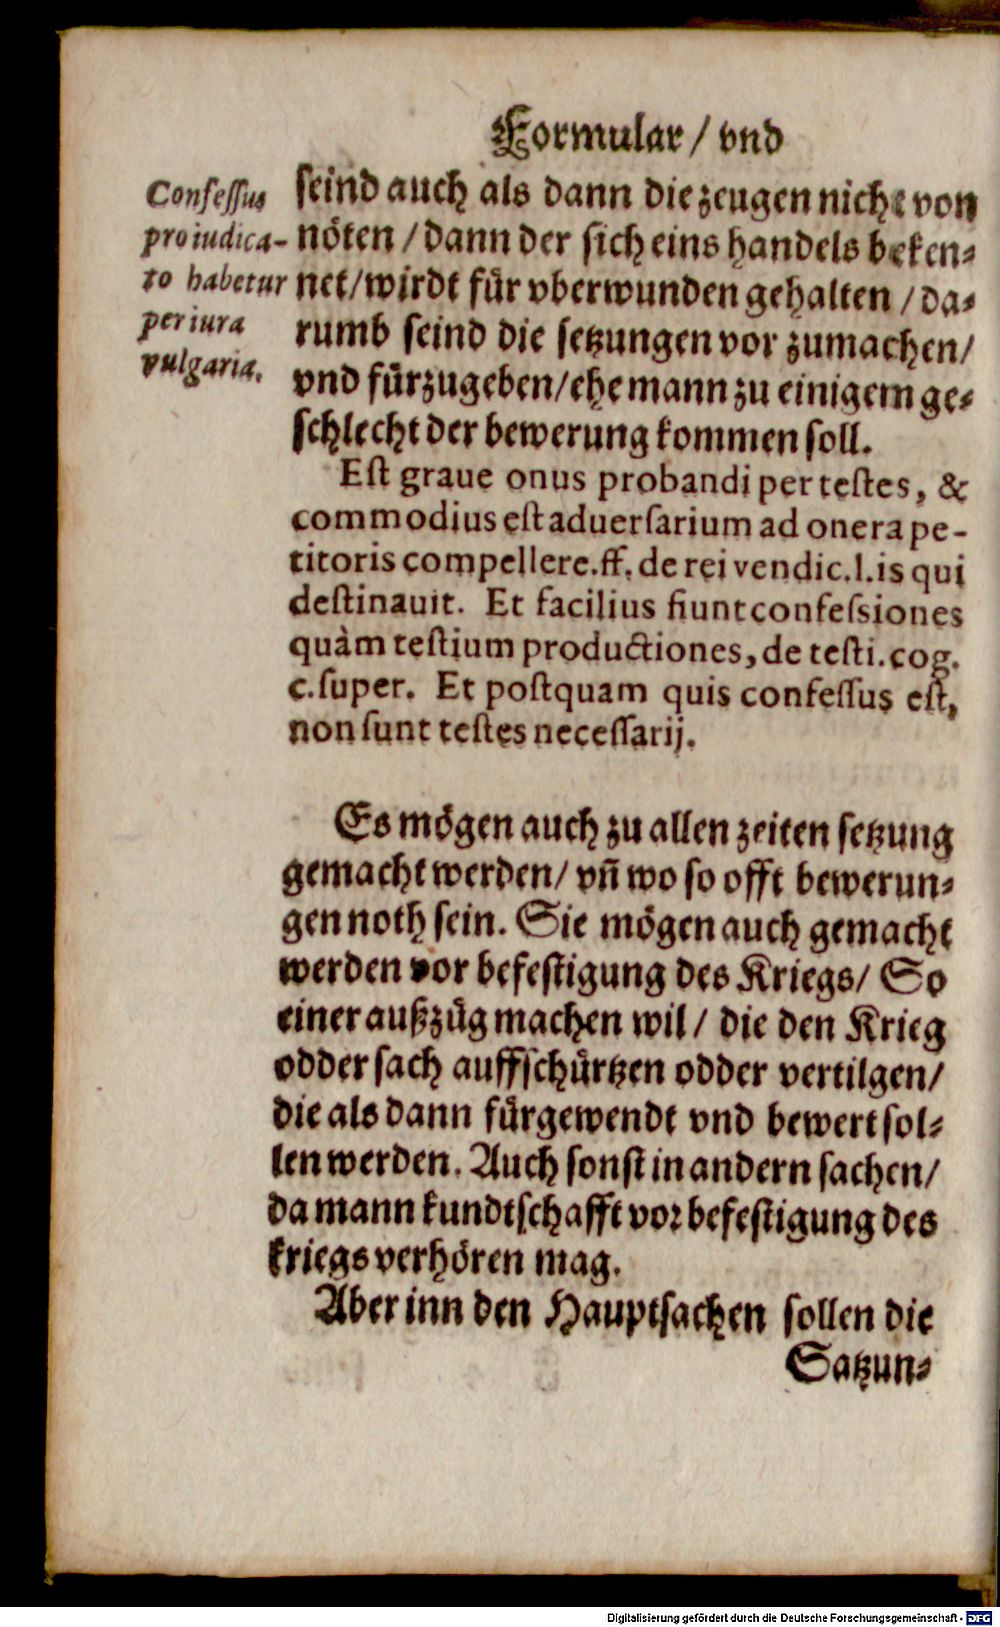 Formular / vnd
Confessus
pro iudica-
to habetur
per iura
vulgaria.
seind auch als dann die zeugen nicht von
nöten / dann der sich eins handels beken-
net / wirdt für vberwunden gehalten / da-
rumb seind die setzungen vor zumachen /
vnd fürzugeben / ehe mann zu einigem ge-
schlecht der bewerung kommen soll.
Est graue onus probandi per testes, &
commodius est aduersarium ad onera pe-
titoris compellere. ff. de rei vendic. l. is qui
destinauit. Et facilius fiunt confessiones
quàm testium productiones, de testi. cog.
c. super. Et postquam quis confessus est,
non sunt testes necessarij.
Es mögen auch zu allen zeiten setzung
gemacht werden / vñ wo so offt bewerun-
gen noth sein. Sie mögen auch gemacht
werden vor befestigung des Kriegs / So
einer außzüg machen wil / die den Krieg
odder sach auffschürtzen odder vertilgen /
die als dann fürgewendt vnd bewert sol-
len werden. Auch sonst in andern sachen /
da mann kundtschafft vor befestigung des
kriegs verhören mag.
Aber inn den Hauptsachen sollen die
Satzun-
Digitalisierung gefördert durch die Deutsche Forschungsgemeinschaft - DFG